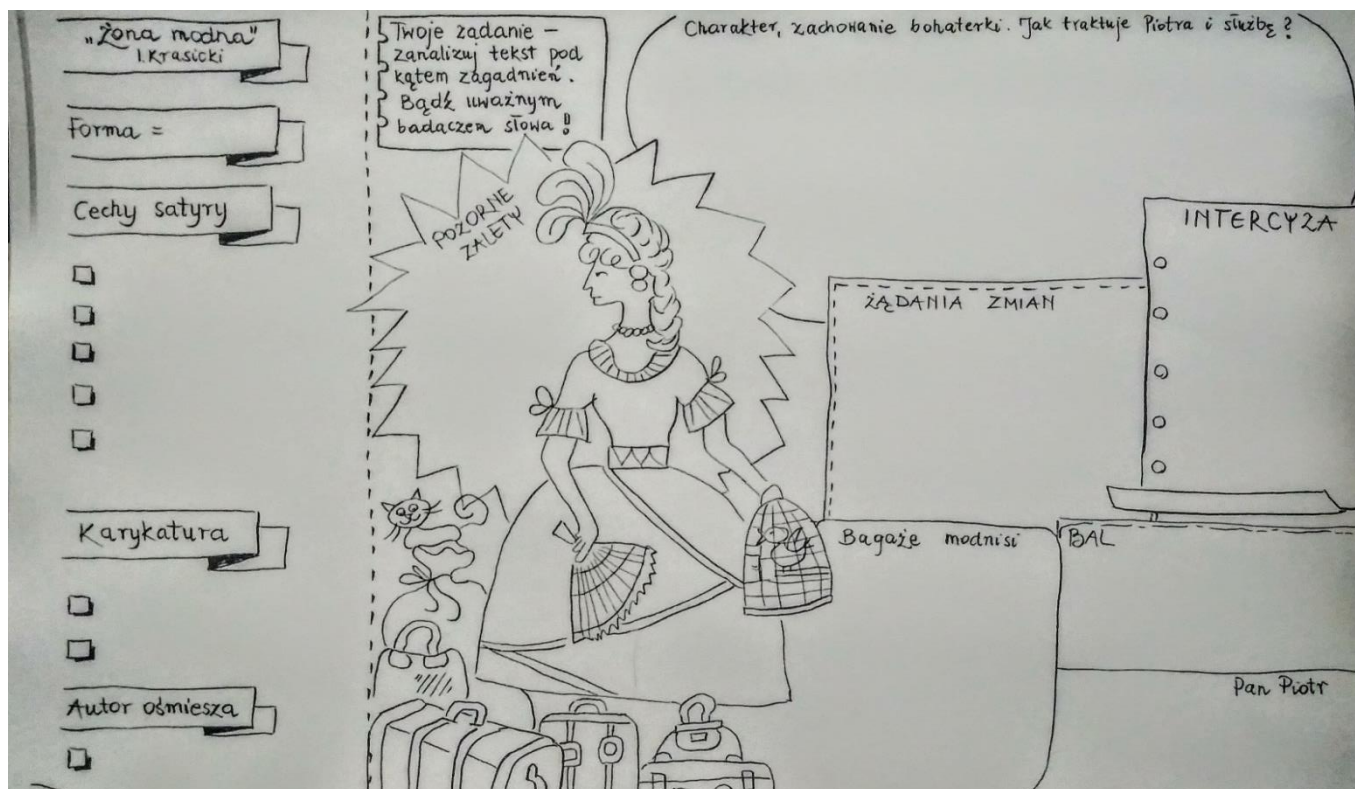 „Żona modna"
I. Krasicki
Forma =
Cechy satyry
Karykatura
Autor ośmiesza
Twoje zadanie –
zanalizuj tekst pod
kątem zagadnień.
Bądź uważnym
badaczem słowa!
POZORNE
ZALETY
Charakter, zachowanie bohaterki. Jak traktuje Piotra i służbę?
INTERCYZA
ŻĄDANIA ZMIAN
Bagaże modnisi
BAL
Pan Piotr